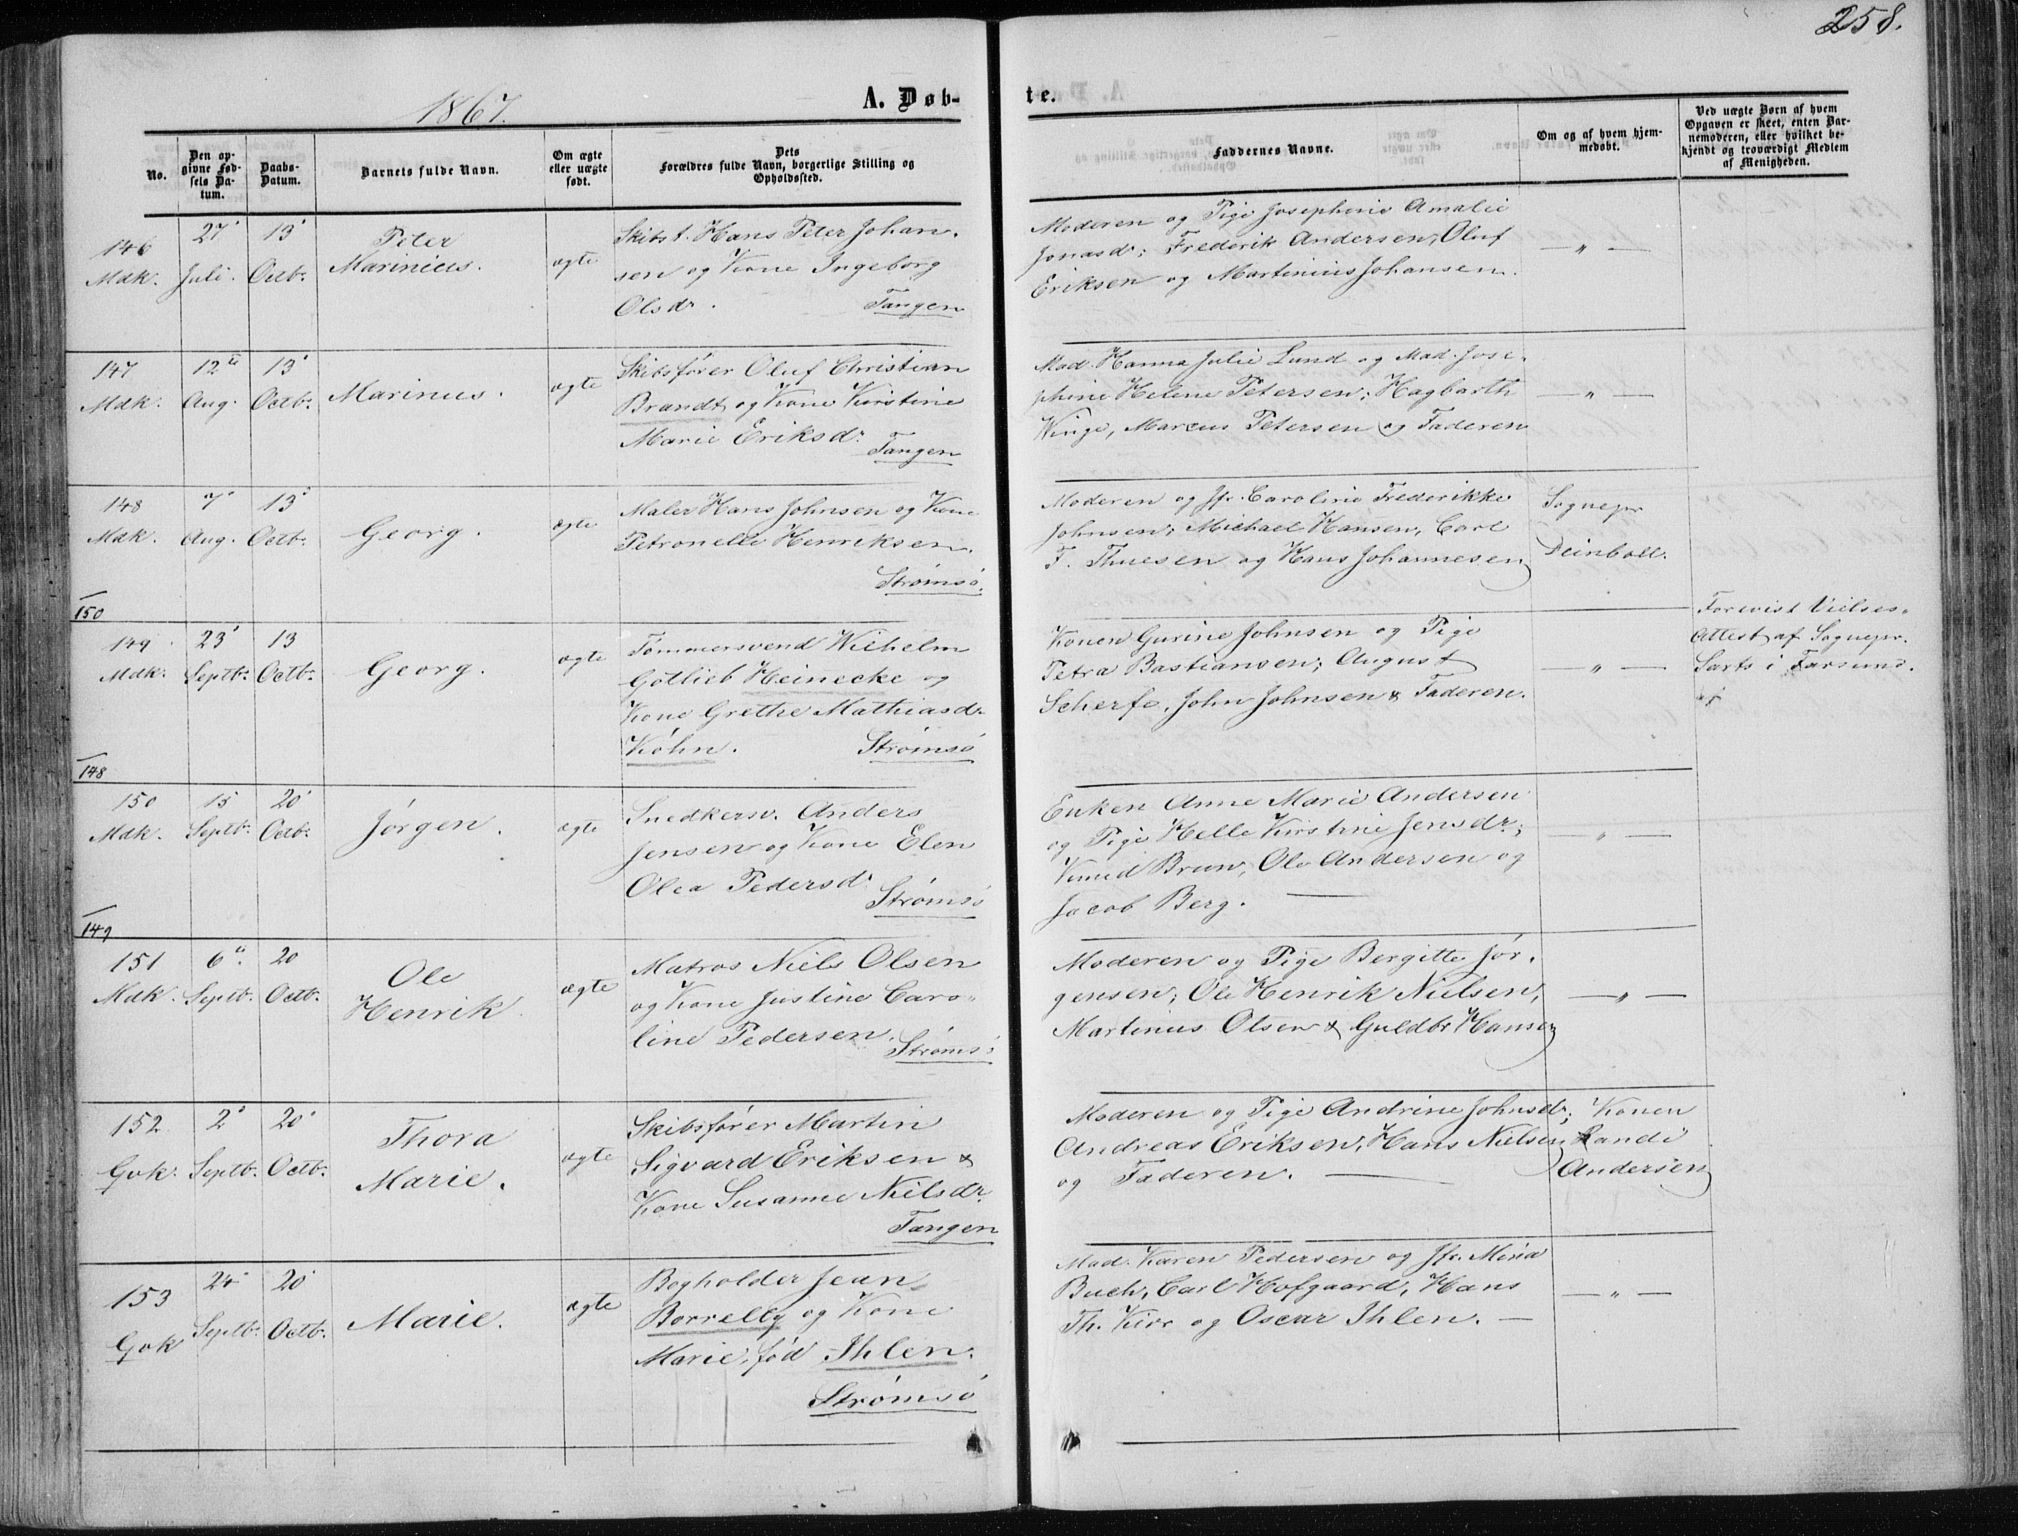 258.
1867.
A. Døb-
te.
No.
Den op-
givne Fød-
sels Da-
tum.
Daabs-
Datum.
Barnets fulde Navn.
Om ægte
eller uægte
født.
Dets
Forældres fulde Navn, borgerlige Stilling og
Opholdssted.
Faddernes Navne.
Om og af hvem hjem-
medøbt.
Ved uægte Børn af hvem
Opgaven er skeet, enten Bar-
nemoderen, eller hvilket be-
kjendt og troværdigt Medlem
af Menigheden.
146
Mdk.
27'
Juli.
13'
Octb.
Peter
Marinius.
ægte
Skibst. Hans Peter Johan-
sen og Kone Ingeborg
Olsdr.
Tangen
Moderen og Pige Josephine Amalie
Jonasdr; Frederik Andersen, Oluf
Eriksen og Martinius Johansen.
— " —
147
Mdk.
12te
Aug.
13'
Octb.
Marinus.
ægte
Skibsfører Oluf Christian
Brandt og Kone Kirstine
Marie Eriksdr.
Tangen
Mad. Hanna Julie Lund og Mad. Jose-
phine Helene Petersen; Hagbarth
Winge, Marcus Petersen og Faderen
— " —
148
Mdk.
7'
Aug.
13'
Octb.
Georg.
ægte
Maler Hans Johnsen og Kone
Petronelle Henriksen.
Strømsø.
Moderen og Jfr. Caroline Frederikke
Johnsen; Michael Hansen, Carl
F. Thuesen og Hans Johannesen
Sognepr
Deinboll.
150
149
Mdk.
23'
Septb.
13
Octb.
Georg.
ægte
Tømmersvend Wilhelm
Gotlieb Heinecke og
Kone Grethe Mathiasdr
Köhn.
Strømsø
Konen Gurine Johnsen og Pige
Petra Bastiansen; August
Scherfe, John Johnsen & Faderen.
— " —
Forevist Vielses-
Attest af Sognepr.
Sarts i Farsund.
148
150
Mdk.
15
Septb.
20'
Octb.
Jørgen.
ægte
Snedkersv. Anders
Jensen og Kone Elen
Olea Pedersdr
Strømsø
Enken Anne Marie Andersen
og Pige Helle Kirstine Jensdr;
Knud Brun, Ole Andersen og
Jacob Berg. —
" —
149
151
Mdk.
6te
Septb.
20
Octb.
Ole
Henrik.
ægte
Matros Niels Olsen
og Kone Justine Caro-
line Pedersen.
Strømsø
Moderen og Pige Bergitte Jør-
gensen; Ole Henrik Nielsen,
Martinius Olsen & Guldbr Hansen
— " —
152.
Gvk.
2'
Septb.
20'
Octb.
Thora
Marie.
ægte
Skibsfører Martin
Sigvard Eriksen &
Kone Susanne Nielsdr.
Tangen
Moderen og Pige Andrine Johnsdr;
Andreas Eriksen, Hans Nielsen
og Faderen. —
Konen
Randi
Andersen
153
Gvk
24'
Septb.
20'
Octb.
Marie.
ægte
Bogholder Jean
Borrelly og Kone
Marie, fød Ihlen.
Strømsø
Mad. Karen Pedersen og Jfr. Mina
Buch, Carl Hofgaard, Hans
Th. Kiær og Oscar Ihlen. —
— " —